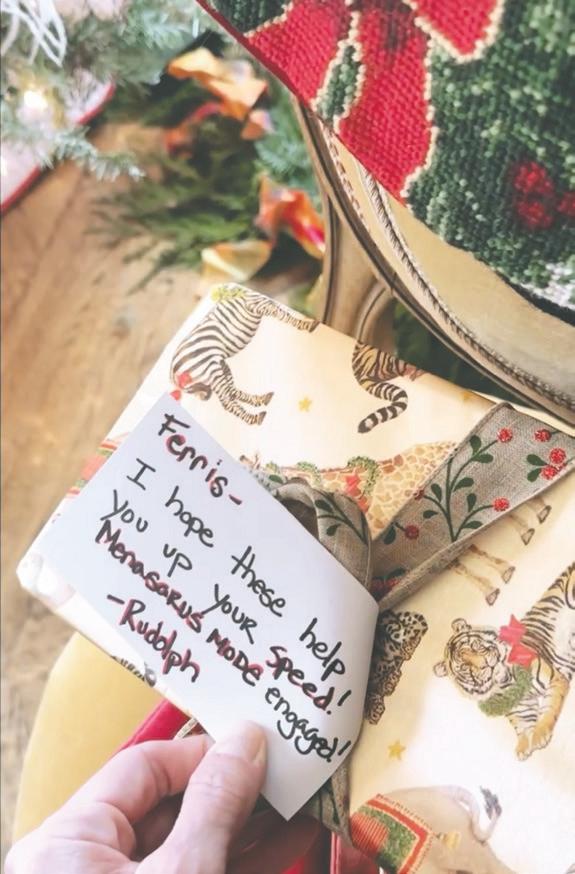 Ferris-
I hope these help
you up your speed!
Menasarus MODE engaged!
-Rudolph